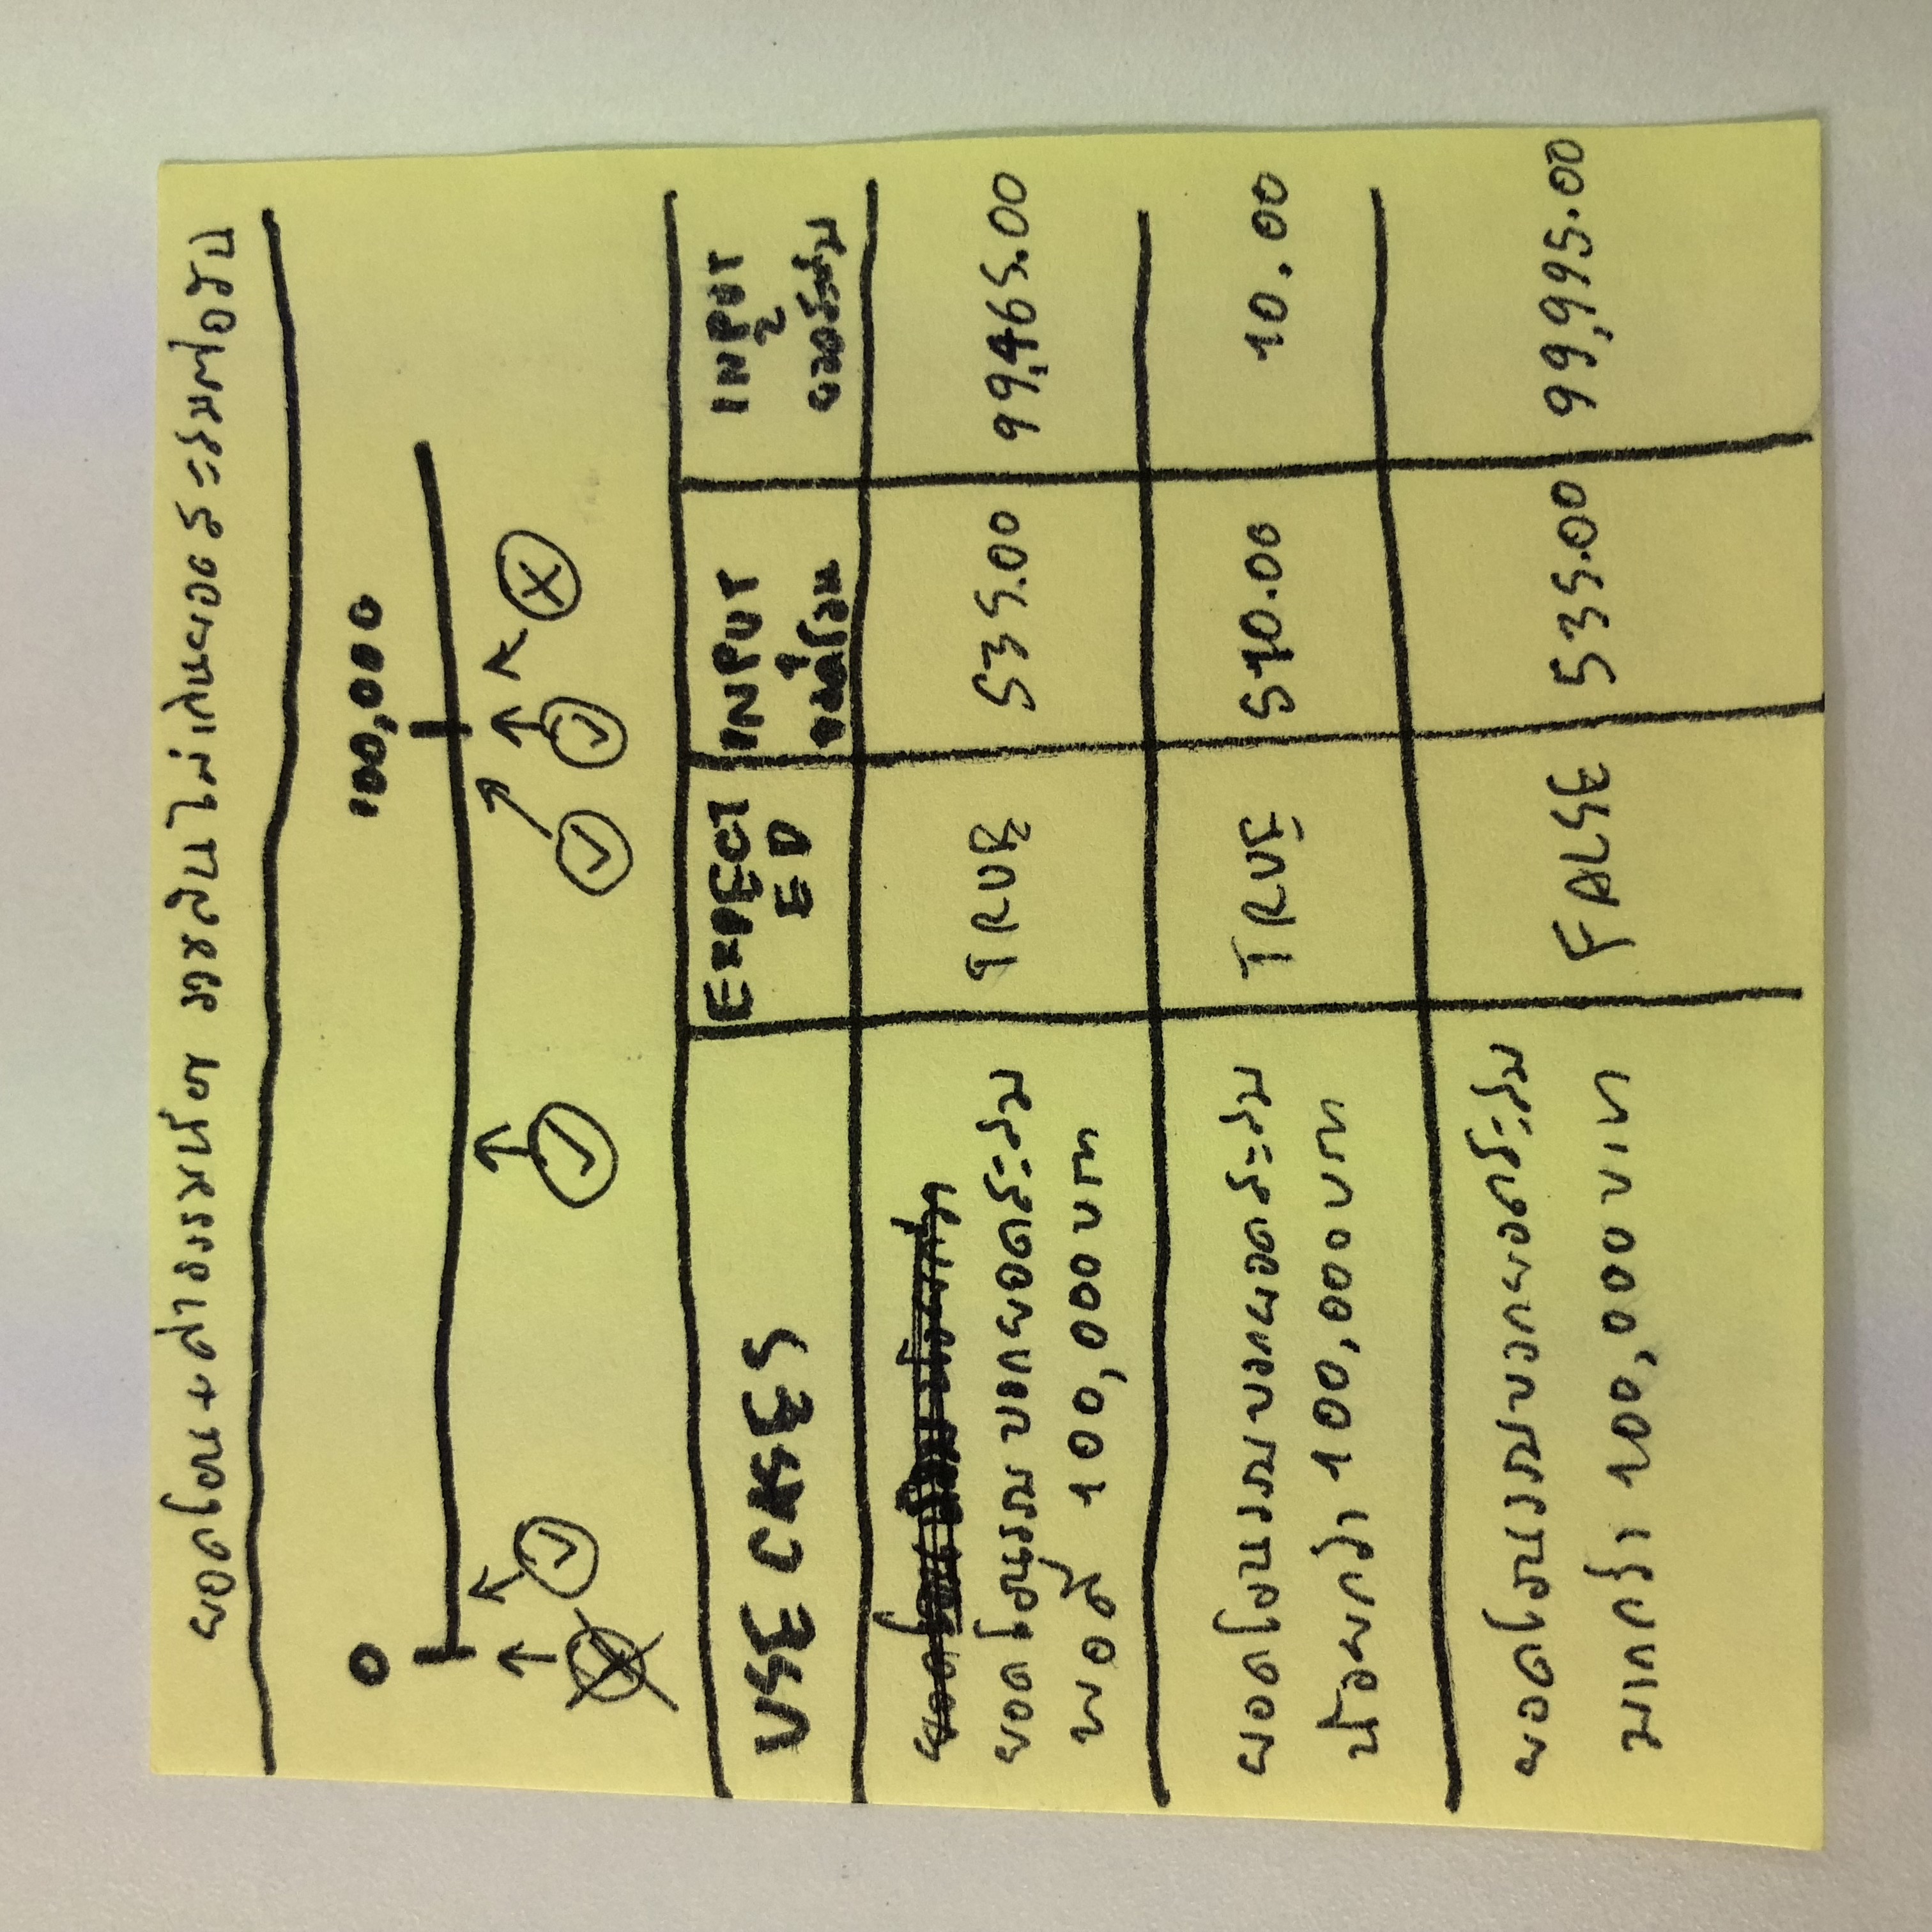 ยอดโอน + ค่าธรรมเนียม รวมกันไม่เกินยอดสะสมต่อวัน
0 100,000
USE CASES EXPECTED INPUT 1 ยอดโอน INPUT 2 ยอดสะสม
ยอดโอนรวมบวกยอดสะสม
พอดี 100,000 บาท TRUE 535.00 99,465.00
ยอดโอนรวมบวกยอดสะสม
น้อยกว่า 100,000 บาท TRUE 510.00 10.00
ยอดโอนรวมบวกยอดสะสม
มากกว่า 100,000 บาท FALSE 535.00 99,995.00